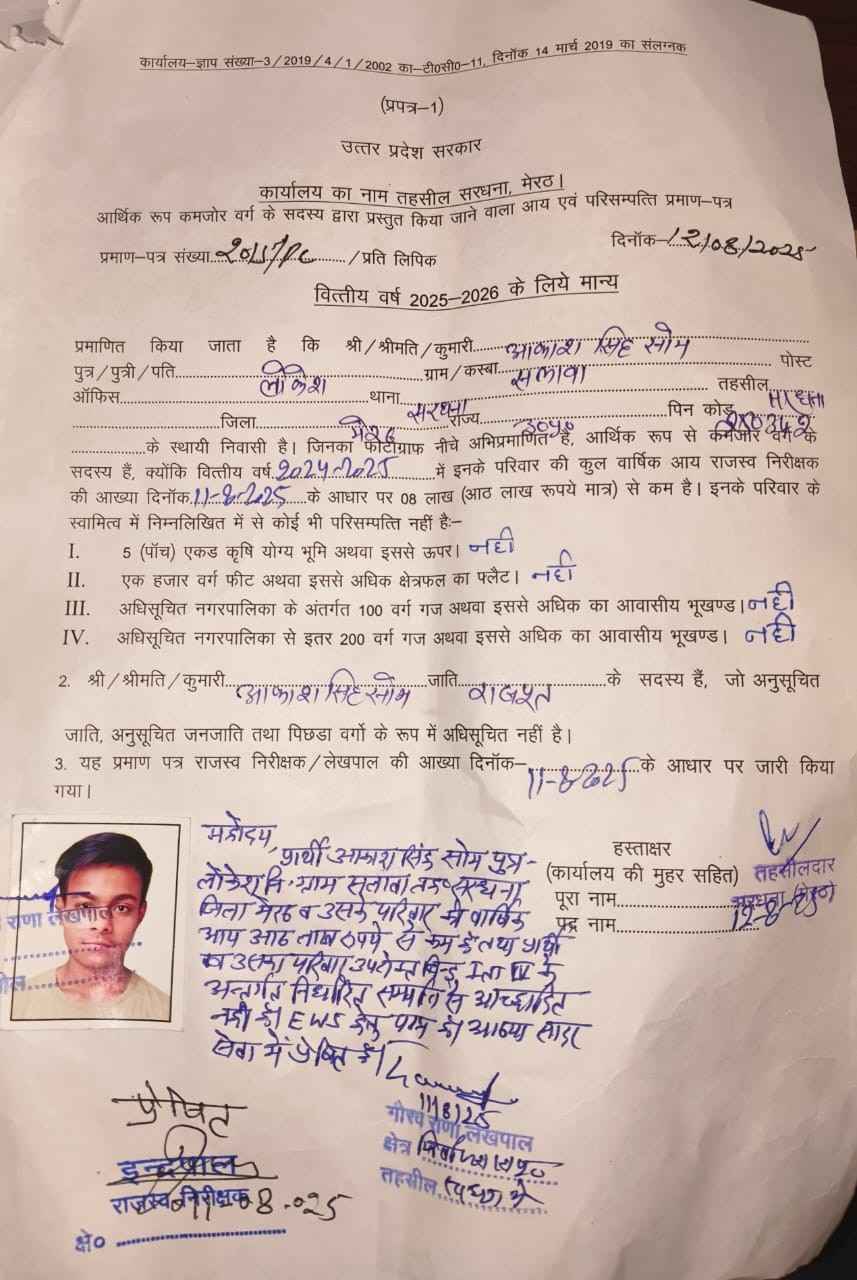 कार्यालय–ज्ञाप संख्या–3/2019/4/1/2002 का–टी०सी०–11, दिनॉक 14 मार्च 2019 का संलग्नक
(प्रपत्र–1)
उत्तर प्रदेश सरकार
कार्यालय का नाम तहसील सरधना, मेरठ।
आर्थिक रूप कमजोर वर्ग के सदस्य द्वारा प्रस्तुत किया जाने वाला आय एवं परिसम्पत्ति प्रमाण–पत्र
प्रमाण–पत्र संख्या................/प्रति लिपिक दिनॉक–12/08/2025
वित्तीय वर्ष 2025–2026 के लिये मान्य
प्रमाणित किया जाता है कि श्री/श्रीमति/कुमारी.....आकाश सिंह सोम
पुत्र/पुत्री/पति..........लोकेश..........ग्राम/कस्बा...सलावा............ पोस्ट
ऑफिस..............................थाना....सरधना.................... तहसील सरधना
....................जिला....मेरठ........राज्य....उ०प्र०..........पिन कोड 250342
..............के स्थायी निवासी है। जिनका फोटोग्राफ नीचे अभिप्रमाणित है, आर्थिक रूप से कमजोर वर्ग के
सदस्य हैं, क्योंकि वित्तीय वर्ष.2024-2025.......में इनके परिवार की कुल वार्षिक आय राजस्व निरीक्षक
की आख्या दिनॉक.11-8-2025....के आधार पर 08 लाख (आठ लाख रूपये मात्र) से कम है। इनके परिवार के
स्वामित्व में निम्नलिखित में से कोई भी परिसम्पत्ति नहीं हैः–
I. 5 (पॉच) एकड कृषि योग्य भूमि अथवा इससे ऊपर। नही
II. एक हजार वर्ग फीट अथवा इससे अधिक क्षेत्रफल का फ्लैट। नही
III. अधिसूचित नगरपालिका के अंतर्गत 100 वर्ग गज अथवा इससे अधिक का आवासीय भूखण्ड। नही
IV. अधिसूचित नगरपालिका से इतर 200 वर्ग गज अथवा इससे अधिक का आवासीय भूखण्ड। नही
2. श्री/श्रीमति/कुमारी..आकाश सिंह सोम..जाति...राजपूत........के सदस्य हैं, जो अनुसूचित
जाति, अनुसूचित जनजाति तथा पिछडा वर्गो के रूप में अधिसूचित नहीं है।
3. यह प्रमाण पत्र राजस्व निरीक्षक/लेखपाल की आख्या दिनॉक–..11-8-2025..के आधार पर जारी किया
गया।
महोदय,
प्रार्थी आकाश सिंह सोम पुत्र-
लोकेश नि० ग्राम सलावा तह० सरधना
जिला मेरठ व उसके परिवार की वार्षिक
आय आठ लाख रुपये से कम है तथा प्रार्थी
व उसका परिवार उपरोक्त बिन्दु I ता IV के
अन्तर्गत निर्धारित सम्पत्ति से आच्छादित
नही है। EWS हेतु पात्र है। आख्या सादर
सेवा में प्रेषित है।
11/8/25
गौरव राणा लेखपाल
क्षेत्र
तहसील
हस्ताक्षर
(कार्यालय की मुहर सहित) तहसीलदार
पूरा नाम.................. सरधना (मेरठ)
पद नाम.................. 12-8-25
राणा लेखपाल
प्रेषित
इन्द्रपाल
राजस्व निरीक्षक
11-08-025
क्षे० ....................